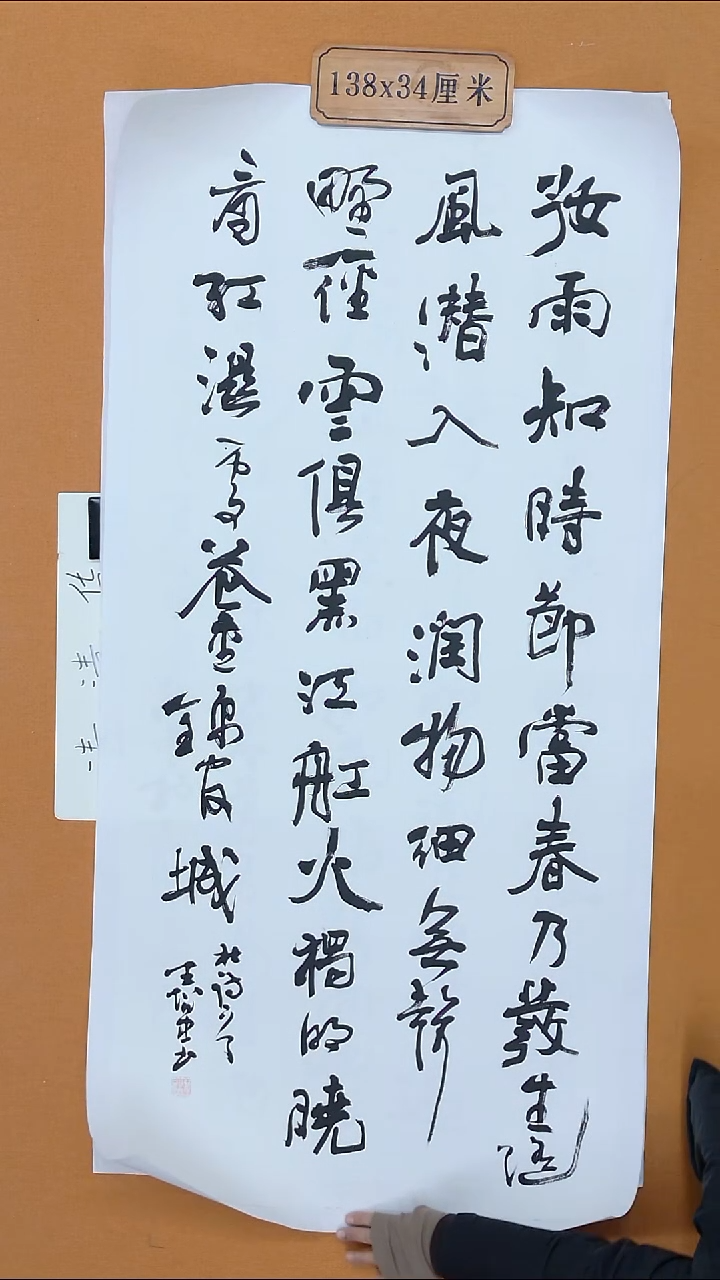 138x34厘米
好雨知時節當春乃發生隨
風潛入夜潤物細無聲
野徑雲俱黑江舡火獨明曉
看紅濕處花重錦官城
杜詩